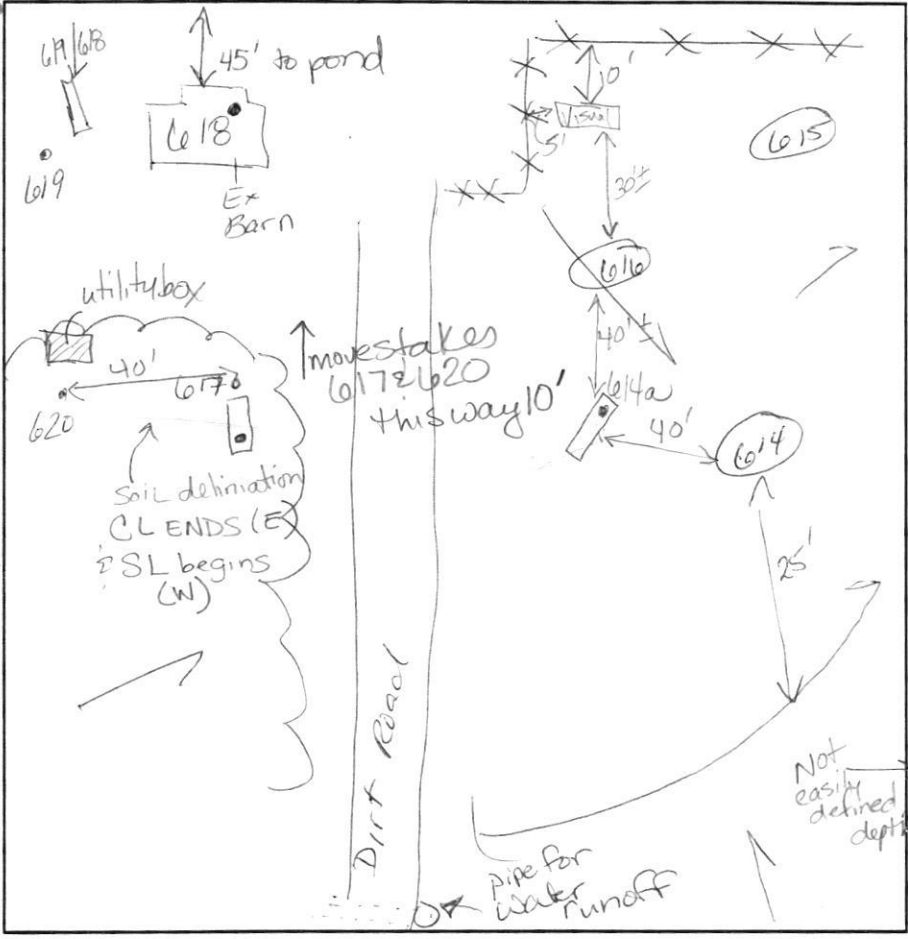 619/618
45' to pond
618
619
Ex
Barn
10'
Visual
5'
615
30'±
616
utility box
40'
617
620
move stakes
617 & 620
this way 10'
40'±
614a
40'
614
soil deliniation
CL ENDS (E)
& SL begins
(W)
25'
Dirt Road
Not
easily
defined
pipe for
water
runoff